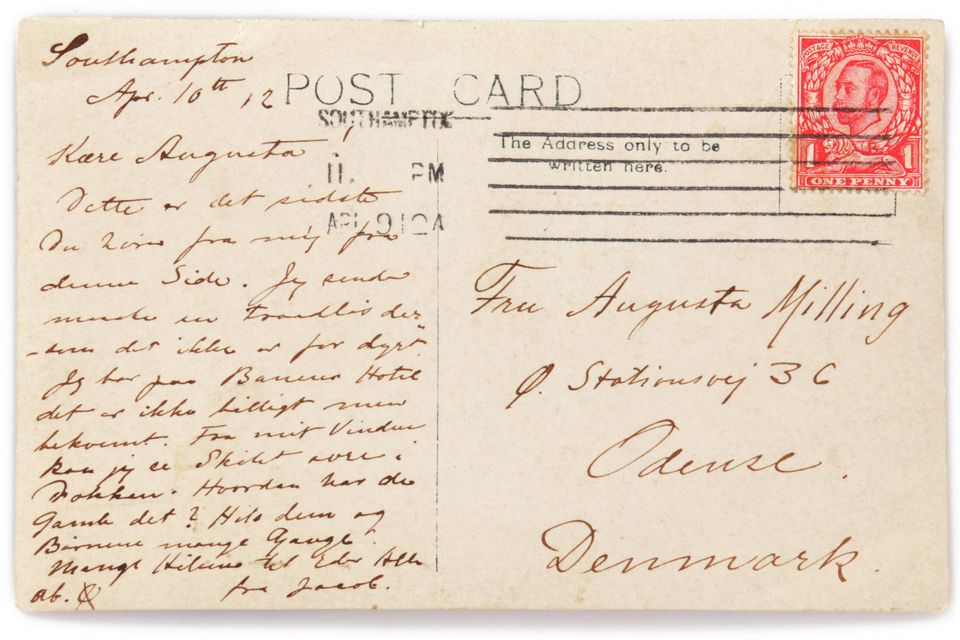 Southampton
Apr. 10th 12
POST CARD
SOUTHAMPTON
11. PM
AP 9 12 A
The Address only to be
written here.
POSTAGE REVENUE
1 1
ONE PENNY
Kære Augusta!
Dette er det sidste
Du hører fra mig fra
denne Side. Jeg sender
en
som det ikke er for dyrt
Jeg bor paa Hotel
det er ikke billigt men
bekvemt. Fra mit Vindue
kan jeg se Skibet ovre i
Dokken. Hvordan har de
Gamle det? Hils dem og
Børnene mange Gange.
Mange Hilsner til Eder Alle
fra Jacob.
Fru Augusta Milling
Ø. Stationsvej 36
Odense.
Denmark.